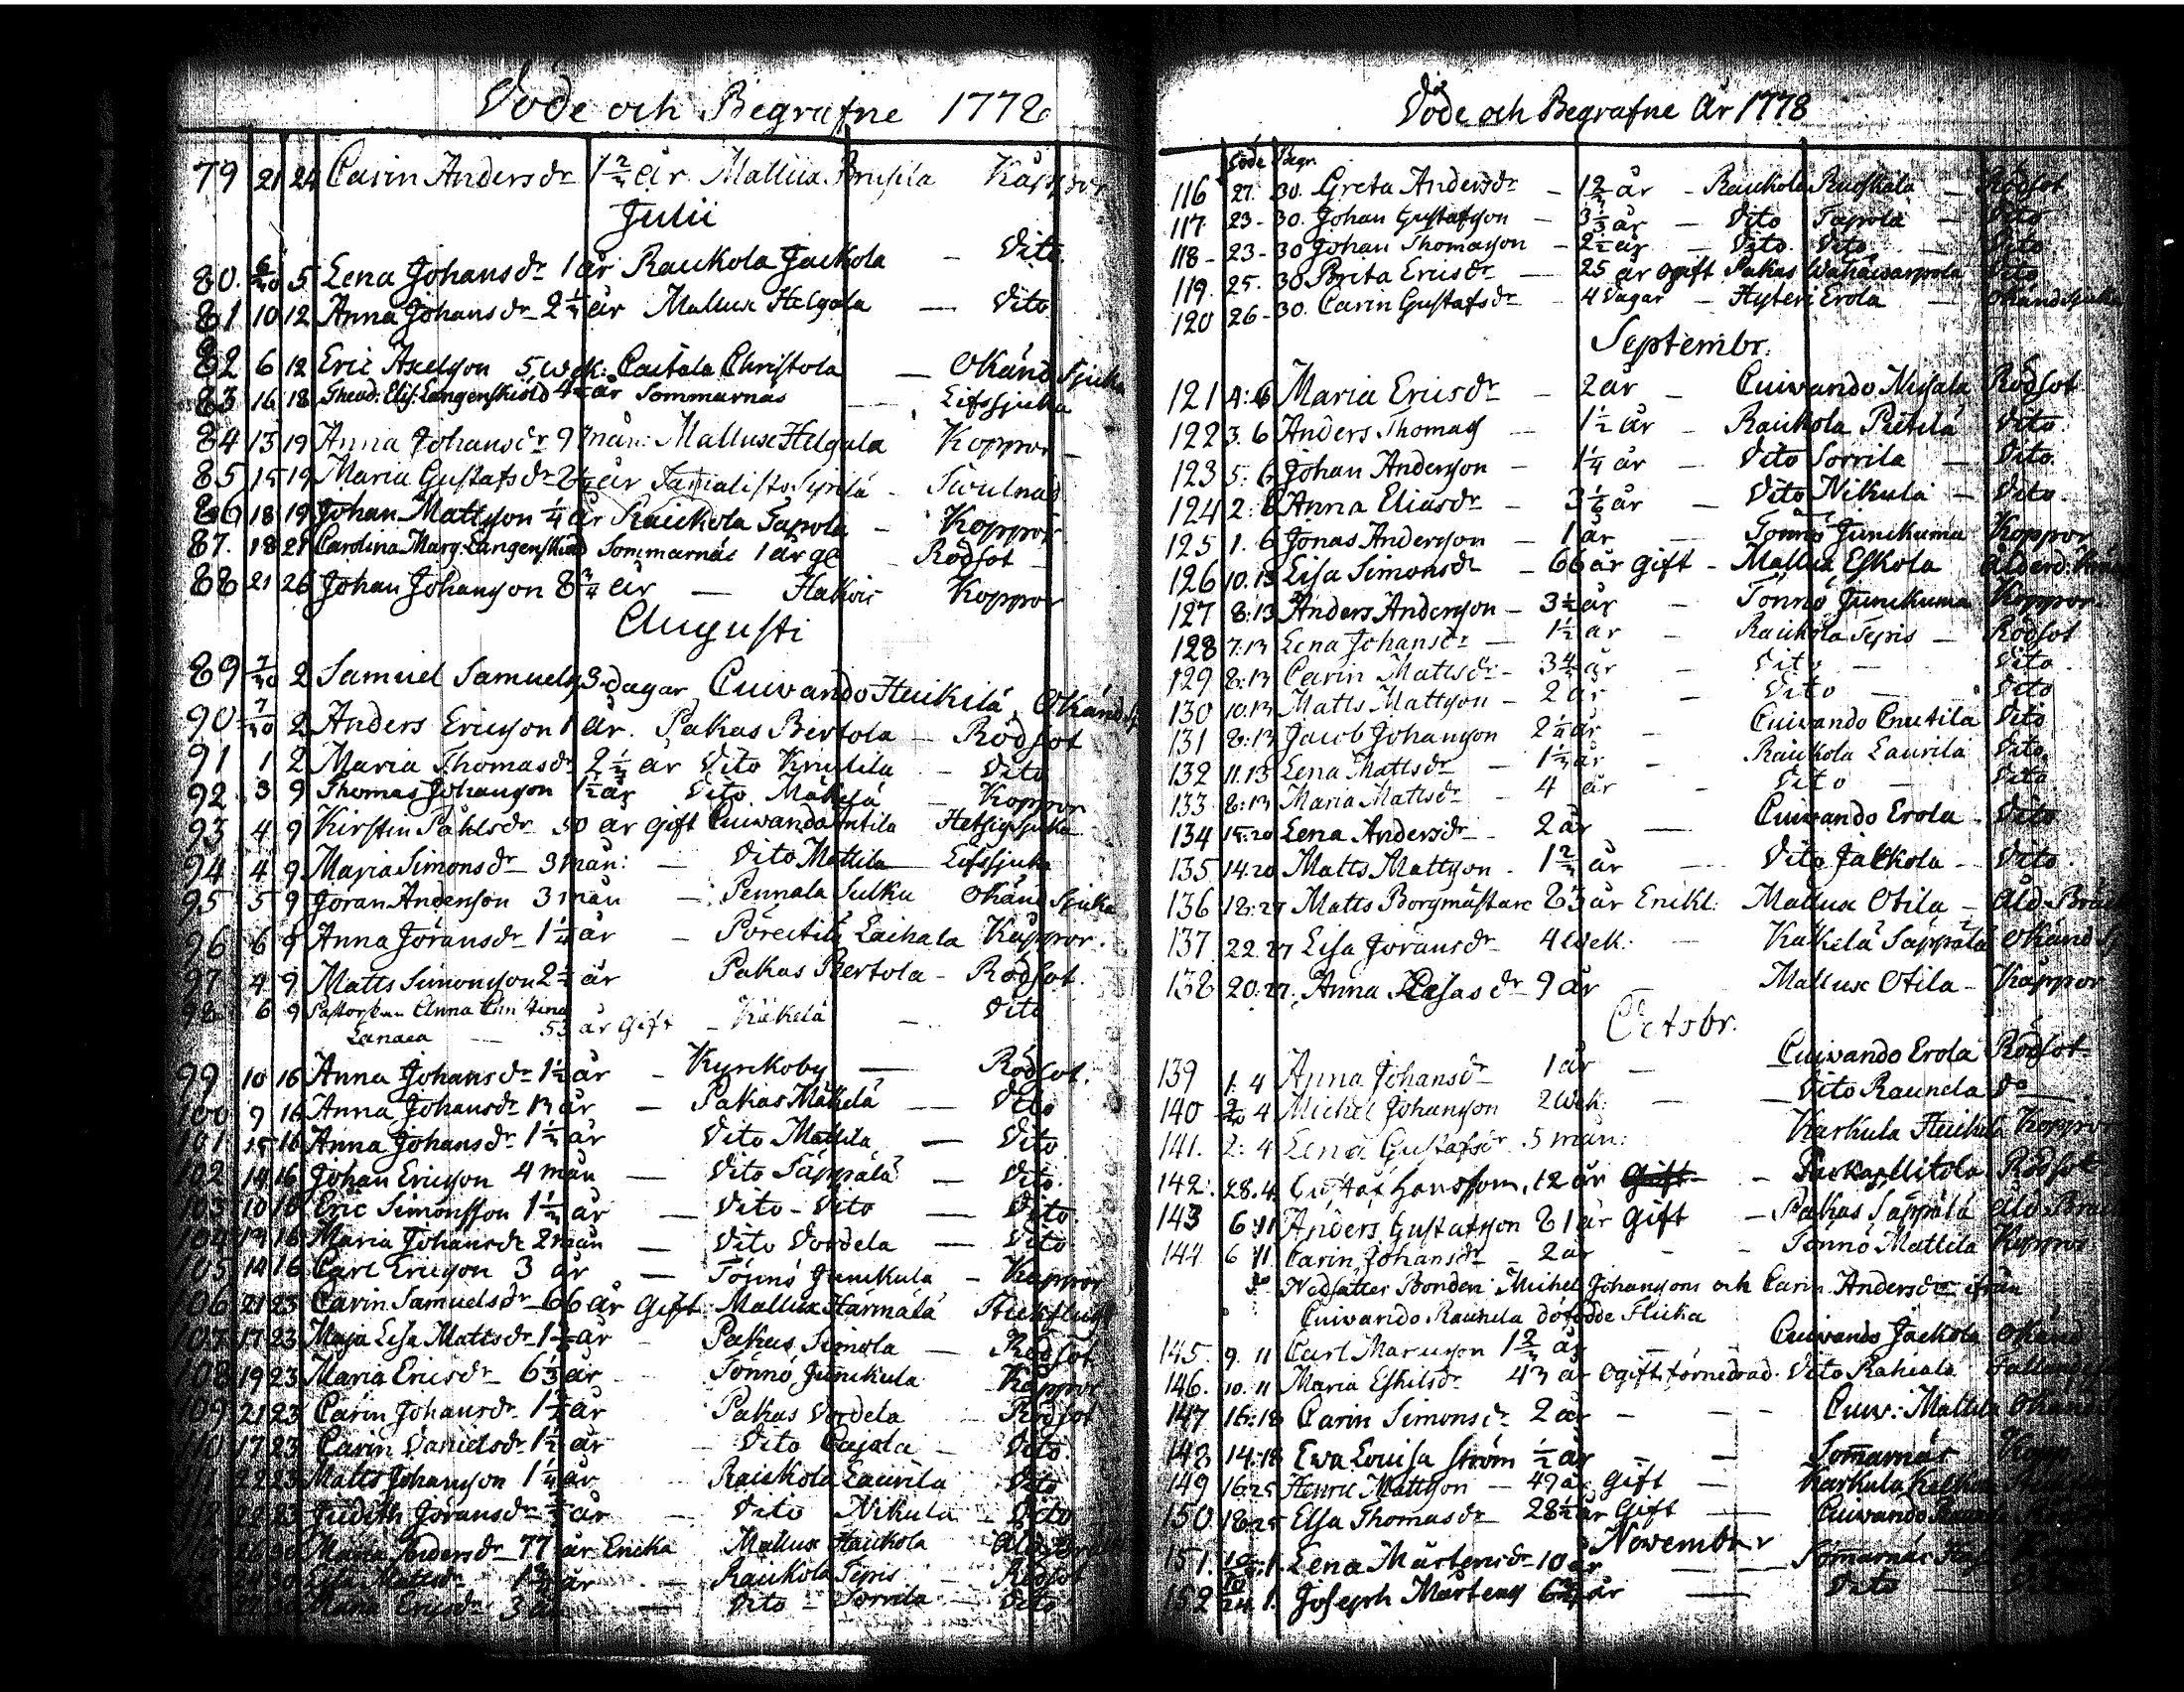 Döde och Begrafne 1778
79 21 24 Carin Andersdr 1 2/4 år Mallux Brusila Kåppor
Julii
80. 6/30 5 Lena Johansdr 1 år Raukola Jackola – Dito
81 10 12 Anna Johansdr 2 1/4 år Mallux Helgala — Dito
82 6 12 Eric Axelson 5 wek: Caitala Christola — Okänd Sjuka
83 16 18 Theod: Elis: Langenskiöld år Sommarnäs — Lifssjuka
84 13 19 Anna Johansdr 9 mån: Mallux Helgala Koppor –
85 15 19 Maria Gustafsdr år
86 18 19 Johan Mattson 1/4 år Raukola Tapola – Koppor
87. 18 21 Carolina Marg. Langenskiöld Sommarnäs 1 år gl – Rödsot –
88 21 26 Johan Johanson 8 3/4 år — Hakois Koppor
Augusti
89 7/30 2 Samuel Samuels 3 dagar Cuivando Heikilä Okänd
90 7/30 2 Anders Ericson 1 år. Pakas Bertola – Rödsot
91 1 2 Maria Thomasdr 2 1/2 år Dito – Dito
92 3 9 Thomas Johanson 1 1/2 år Dito Mäkelä – Koppor
93 4 9 Kirstin Påhlsdr 50 år gift Cuivando Antila Hetsig Sjuka
94 4 9 Maria Simonsdr 3 mån: — Dito Mattila Lifssjuka
95 5 9 Jöran Anderson 3 mån – Pennala Sulku Okänd Sjuka
96 6 9 Anna Jöransdr 1 1/4 år – Laihala Kåppor.
97 4 9 Matts Simonson 2 1/2 år Pakas Bertola – Rödsot.
98 6 9 Anna Christina
Lanaea — 53 år Gift – Käkelä – Dito
99 10 16 Anna Johansdr 1 1/2 år – Kyrkoby — Rödsot.
100 9 16 Anna Johansdr 13 år – Pakas Mäkelä — Dito
101 15 16 Anna Johansdr 1 1/2 år Dito Mattila — Dito
102 14 16 Johan Ericson 4 mån — Dito Säppälä – Dito.
103 10 16 Eric Simonsson 1 1/2 år — Dito – Dito — Dito.
104 14 16 Maria Johansdr 2 mån — Dito Dordela — Dito.
105 14 16 Carl Ericson 3 år — Tönnö Junikula – Kåppor
106 21 23 Carin Samuelsdr 66 år Gift Mallux Härmälä
107 17 23 Maja Lisa Mattsdr år – Pakas Simola — Rödsot
108 19 23 Maria Ericsdr 6 1/3 år Tönnö Junikula Kåppor
109 21 23 Carin Johansdr 1 1/2 år Pakas Dordela – Rödsot
110 17 23 Carin Danielsdr 1 1/2 år – Dito Cajala – Dito.
111 22 23 Matts Johanson 1 1/4 år Raukola Laurila Dito
112 22 23 Judith Jöransdr år – Dito Nikula – Dito
26 30 Maria Andersdr 77 år Encka Mallux Haukola
30 Lisa Mattsdr år – Raukola Sipris – Rödsot
Maria Ericsdr 3 år — Dito – Sorrila – Dito
Döde och Begrafne År 1778
Döde Begr
116 27. 30. Greta Andersdr – 1 2/4 år – Raukola Ruoskala – Rödsot
117. 23 – 30. Johan Gustafson – 3 1/3 år — Dito Tapola – Dito
118 – 23 – 30 Johan Thomasson – 2 1/2 år – Dito Dito – Dito
119. 25. 30 Brita Ericsdr — 25 år ogift Pakas Dito
120 26 – 30. Carin Gustafsdr – 4 dagar – Hyteri Erola – Okänd sjuka
Septembr.
121 4: 6 Maria Ericsdr – 2 år – Cuivando Misala Rödsot
122 3. 6 Anders Thomas — 1 1/2 år – Raukola Pietilä Dito
123 5. 6 Johan Anderson – 1 1/4 år – Dito Sorrila – Dito.
124 2: 6 Anna Eliasdr – 3 1/2 år – Dito Nikula – Dito
125 1. 6 Jonas Anderson – 1 år – Tönnö Junikuma Koppor
126 10. 13 Lisa Simonsdr – 66 år gift – Mallux Eskola
127 8: 13 Anders Anderson – 3 1/2 år – Tönnö Junikuma Koppor.
128 7: 13 Lena Johansdr — 1 1/2 år – Raukola Sipris – Rödsot
129 8: 13 Carin Mattsdr – 3 år – Dito — Dito.
130 10. 13 Matts Mattson – 2 år – Dito – Dito
131 8: 13 Jacob Johanson 2 1/4 år – Cuivando Cnutila Dito
132 11. 13 Lena Mattsdr – 1 1/2 år – Raukola Laurila Dito.
133. 8: 13 Maria Mattsdr – 4 år – Dito – Dito
134 15. 20 Lena Andersdr – 2 år — Cuivando Erola – Dito
135 14. 20 Matts Mattson – 1 2/4 år — Dito Jäkkola – Dito.
136 18: 27 Matts Borgmästare 83 år Enkl: Mallux Otila –
137. 22. 27 Lisa Jöransdr 4 wek: – Käkelä Säppälä Okänd
138 20. 27. Anna 9 år Mallux Otila – Kåppor
Octobr.
139 1. 4 Anna Johansdr 1 år — Cuivando Erola Rödsot
140 4 Michel Johanson 2 wek: — Dito Raunela do
141. 2: 4 Lena Gustafsdr 5 mån: Karkula Heikilä Koppor
142: 28. 4 Gustaf Hansson, 12 år Gift – Rödsot
143 6: 11 Anders Gustafson 81 år Gift – Pakas Säppälä
144 6 11 Carin Johansdr – 2 år – – Tönnö Mattila Koppor
Nedsattes Bonden Michel Johansons och Carin Andersdr ifrån
Cuivando Raunela dödfödde Flicka
145. 9. 11 Carl Marcuson 1 2/4 år — Cuivando Jäckola Okänd
146. 10. 11 Maria Eskilsdr 43 år Ogift. förnedrad. Dito Rahiala
147 16: 18 Carin Simonsdr 2 år – – – Cuiv: Mattila Okänd
148 14: 18 Ewa Louisa Ström 1/2 år – – Somarnäs Kopp
149 16. 25 Henric Mattson — 49 år Gift — Karkula
150. 18. 25 Elsa Thomasdr 28 1/2 år Gift — Cuivando
Novembr
151. 1. Lena Mårtensdr 10 år — Somarnäs
152 1. Joseph Mårtens 6 år — Dito